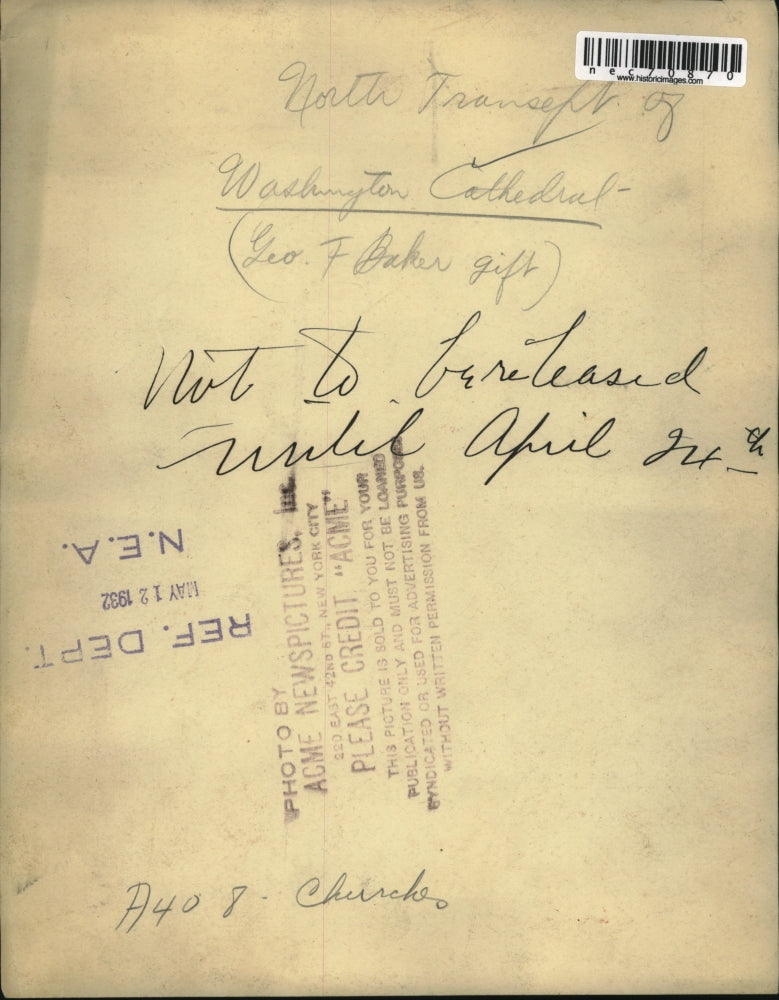 nec70870
www.historicimages.com
North Transept of
Washington Cathedral-
(Geo. F Baker gift)
Not to be released
until April 24th
N.E.A.
MAY 12 1932
REF. DEPT.
PHOTO BY
ACME NEWSPICTURES, Inc.
220 EAST 42ND ST., NEW YORK CITY
PLEASE CREDIT "ACME"
THIS PICTURE IS SOLD TO YOU FOR YOUR
PUBLICATION ONLY AND MUST NOT BE LOANED
SYNDICATED OR USED FOR ADVERTISING PURPOSES
WITHOUT WRITTEN PERMISSION FROM US.
A408 - Churches